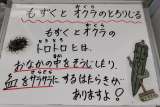 もずくとオクラのとろりじる
もずくとオクラの
トロトロとは、
おなかの中をそうじしたり
血をサラサラにするはたらきか
ありますよ!